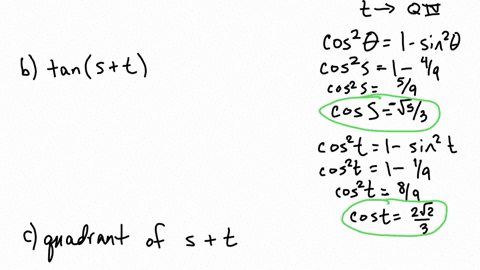 t → QIV
cos²θ = 1 - sin²θ
b) tan(s+t)
cos²s = 1 - 4/9
cos²s = 5/9
cos s = -√5/3
cos²t = 1 - sin²t
cos²t = 1 - 1/9
cos²t = 8/9
cos t = 2√2/3
c) quadrant of s + t